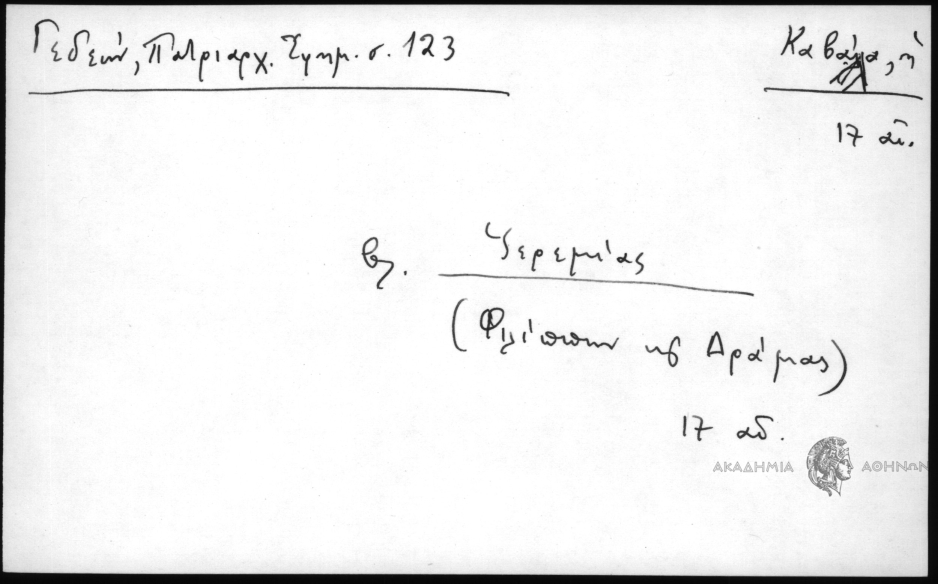 Γεδεών, Πατριαρχ. Ἐφημ. σ. 123
Καβάλα, ἡ
17 αἰ.
βλ. Ἱερεμίας
(Φιλίππων καὶ Δράμας)
17 αἰ.
ΑΚΑΔΗΜΙΑ ΑΘΗΝΩΝ